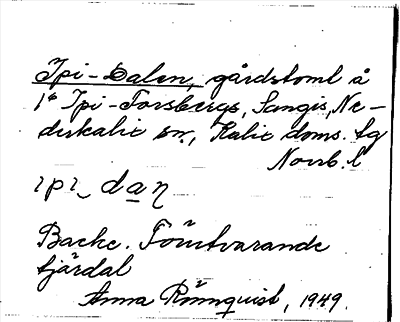 Ipi-Dalen, gårdstoml å
1⁶ Ipi-Forsbergs, Sangis, Ne-
derkalix sn., Kalix doms. lg
Norrb. l
ɩpɩ_ daɳ
Backe. Förutvarande
fjärdal
Anna Rönnquist, 1949.